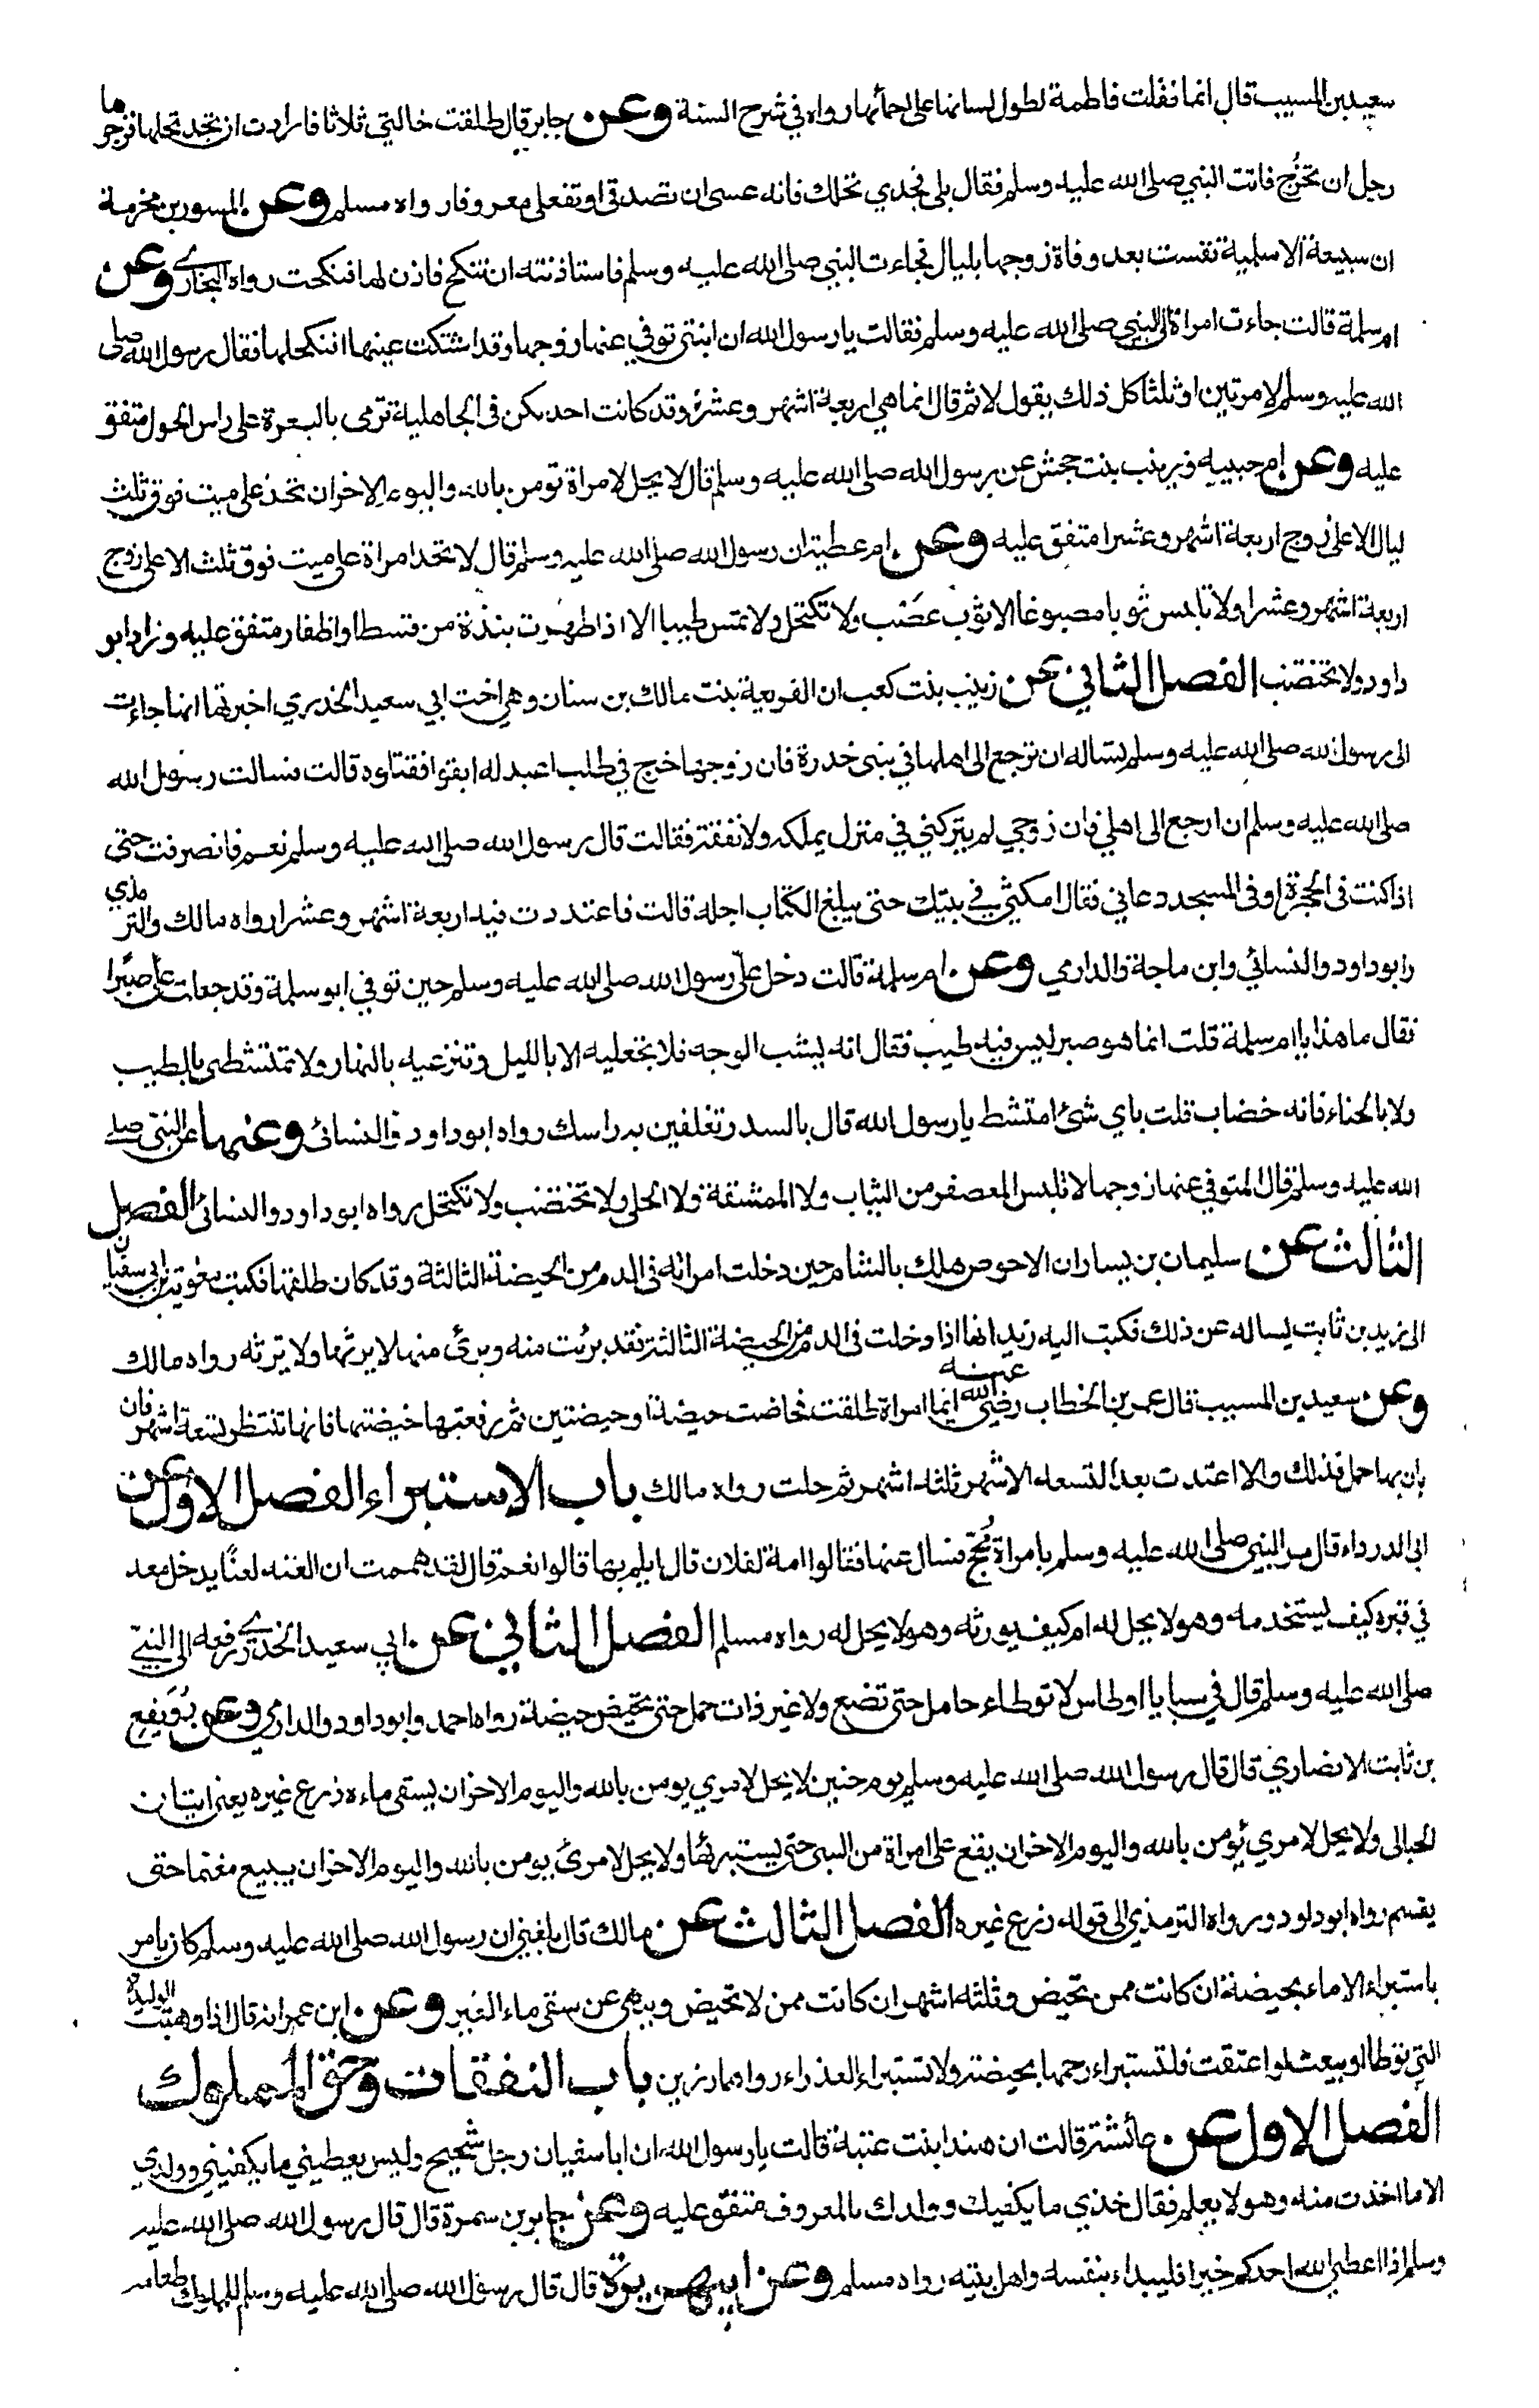 سعيد بن المسيب قال انما نقلت فاطمة لطول لسانها على احمائها رواه في شرح السنة وعن جابر قال طلقت خالتي ثلاثا فارادت ان تجد نخلها فزجرها
رجل ان تخرج فاتت النبي صلى الله عليه وسلم فقال بلى فجدي نخلك فانه عسى ان تصدقي او تفعلي معروفا رواه مسلم وعن المسور بن مخرمة
ان سبيعة الاسلمية نفست بعد وفاة زوجها بليال فجاءت النبي صلى الله عليه وسلم فاستاذنته ان تنكح فاذن لها فنكحت رواه البخاري وعن
ام سلمة قالت جاءت امراة الى النبي صلى الله عليه وسلم فقالت يا رسول الله ان ابنتي توفي عنها زوجها وقد اشتكت عينها انكحلها فقال رسول الله صلى
الله عليه وسلم لا مرتين او ثلثا كل ذلك يقول لا ثم قال انما هي اربعة اشهر وعشر وقد كانت احدىكن في الجاهلية ترمى بالبعرة على راس الحول متفق
عليه وعن ام حبيبة وزينب بنت جحش عن رسول الله صلى الله عليه وسلم قال لا يحل لامراة تومن بالله واليوم الاخر ان تحد على ميت فوق ثلث
ليال الا على زوج اربعة اشهر وعشرا متفق عليه وعن ام عطية ان رسول الله صلى الله عليه وسلم قال لا تحد امراة على ميت فوق ثلث الا على زوج
اربعة اشهر وعشرا ولا تلبس ثوبا مصبوغا الا ثوب عصب ولا تكتحل ولا تمس طيبا الا اذا طهرت نبذة من قسط او اظفار متفق عليه وزاد ابو
داود ولا تختضب الفصل الثاني عن زينب بنت كعب ان الفريعة بنت مالك بن سنان وهي اخت ابي سعيد الخدري اخبرتها انها جاءت
الى رسول الله صلى الله عليه وسلم تساله ان ترجع الى اهلها في بني خدرة فان زوجها خرج في طلب اعبد له ابقوا فقتلوه قالت فسالت رسول الله
صلى الله عليه وسلم ان ارجع الى اهلي فان زوجي لم يتركني في منزل يملكه ولا نفقة فقالت قال رسول الله صلى الله عليه وسلم نعم فانصرفت حتى
اذا كنت في الحجرة او في المسجد دعاني فقال امكثي في بيتك حتى يبلغ الكتاب اجله قالت فاعتددت فيه اربعة اشهر وعشرا رواه مالك والترمذي
وابو داود والنسائي وابن ماجة والدارمي وعن ام سلمة قالت دخل علي رسول الله صلى الله عليه وسلم حين توفي ابو سلمة وقد جعلت علي صبرا
فقال ما هذا يا ام سلمة قلت انما هو صبر ليس فيه طيب فقال انه يشب الوجه فلا تجعليه الا بالليل وتنزعيه بالنهار ولا تمتشطي بالطيب
ولا بالحناء فانه خضاب قلت باي شئ امتشط يا رسول الله قال بالسدر تغلفين به راسك رواه ابو داود والنسائي وعنها عن النبي صلى
الله عليه وسلم قال المتوفي عنها زوجها لا تلبس المعصفر من الثياب ولا الممشقة ولا الحلي ولا تختضب ولا تكتحل رواه ابو داود والنسائي الفصل
الثالث عن سليمان بن يسار ان الاحوص هلك بالشام حين دخلت امراته في الدم من الحيضة الثالثة وقد كان طلقها فكتب معوية بن ابي سفيان
الى زيد بن ثابت يساله عن ذلك فكتب اليه زيد انها اذا دخلت في الدم من الحيضة الثالثة فقد برئت منه وبرئ منها لا يرثها ولا ترثه رواه مالك
وعن سعيد بن المسيب قال عمر بن الخطاب رضي الله عنه ايما امراة طلقت فحاضت حيضة او حيضتين ثم رفعتها حيضتها فانها تنتظر تسعة اشهر فان
بان بها حمل فذلك والا اعتدت بعد التسعة الاشهر ثلثة اشهر ثم حلت رواه مالك باب الاستبراء الفصل الاول عن
ابي الدرداء قال مر النبي صلى الله عليه وسلم بامراة مجح فسال عنها فقالوا امة لفلان قال ايلم بها قالوا نعم قال لقد هممت ان العنه لعنا يدخل معه
في قبره كيف يستخدمه وهو لا يحل له ام كيف يورثه وهو لا يحل له رواه مسلم الفصل الثاني عن ابي سعيد الخدري رفعه الى النبي
صلى الله عليه وسلم قال في سبايا اوطاس لا توطاء حامل حتى تضع ولا غير ذات حمل حتى تحيض حيضة رواه احمد وابو داود والدارمي وعن رويفع
بن ثابت الانصاري قال قال رسول الله صلى الله عليه وسلم يوم حنين لا يحل لامري يومن بالله واليوم الاخر ان يسقي ماءه زرع غيره يعني اتيان
الحبالى ولا يحل لامري يؤمن بالله واليوم الاخر ان يقع على امراة من السبي حتى يستبرئها ولا يحل لامرئ يومن بالله واليوم الاخر ان يبيع مغنما حتى
يقسم رواه ابو داود ورواه الترمذي الى قوله زرع غيره الفصل الثالث عن مالك قال بلغني ان رسول الله صلى الله عليه وسلم كان يامر
باستبراء الاماء بحيضة ان كانت ممن تحيض وثلثة اشهر ان كانت ممن لا تحيض وينهى عن سقي ماء الغير وعن ابن عمر انه قال اذا وهبت الوليدة
التي توطا او بيعت او اعتقت فلتستبراء رحمها بحيضة ولا تستبراء العذراء رواهما رزين باب النفقات وحق المملوك
الفصل الاول عن عائشة قالت ان هندا بنت عتبة قالت يا رسول الله ان ابا سفيان رجل شحيح وليس يعطيني ما يكفيني وولدي
الا ما اخذت منه وهو لا يعلم فقال خذي ما يكفيك وولدك بالمعروف متفق عليه وعن جابر بن سمرة قال قال رسول الله صلى الله عليه
وسلم اذا اعطى الله احدكم خيرا فليبداء بنفسه واهل بيته رواه مسلم وعن ابي هريرة قال قال رسول الله صلى الله عليه وسلم للمملوك طعامه